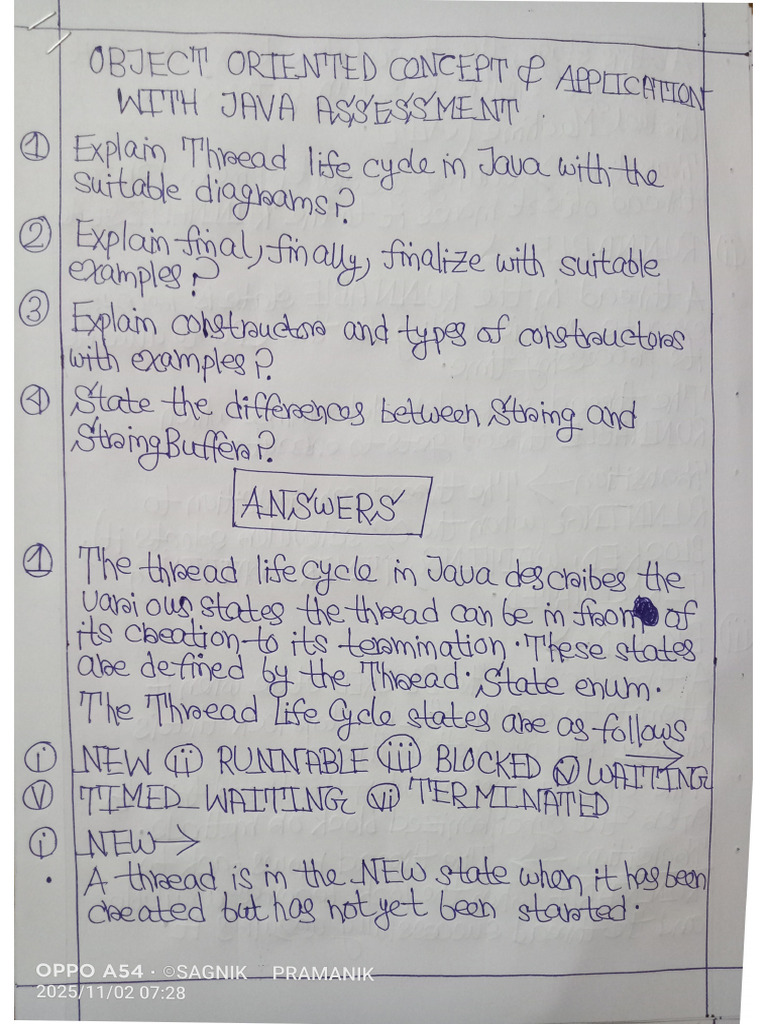 OBJECT ORIENTED CONCEPT & APPLICATION
WITH JAVA ASSESSMENT
① Explain Thread life cycle in Java with the
suitable diagrams?
② Explain final, finally, finalize with suitable
examples?
③ Explain constructor and types of constructors
with examples?
④ State the differences between String and
StringBuffer?
ANSWERS
① The thread life cycle in Java describes the
various states the thread can be in from of
its creation to its termination. These states
are defined by the Thread. State enum.
The Thread Life Cycle states are as follows →
ⓘ NEW ⓘⓘ RUNNABLE ⓘⓘⓘ BLOCKED ⓘⓥ WAITING
ⓥ TIMED_WAITING ⓥⓘ TERMINATED
ⓘ NEW →
• A thread is in the NEW state when it has been
created but has not yet been started.
OPPO A54 · ©SAGNIK PRAMANIK
2025/11/02 07:28